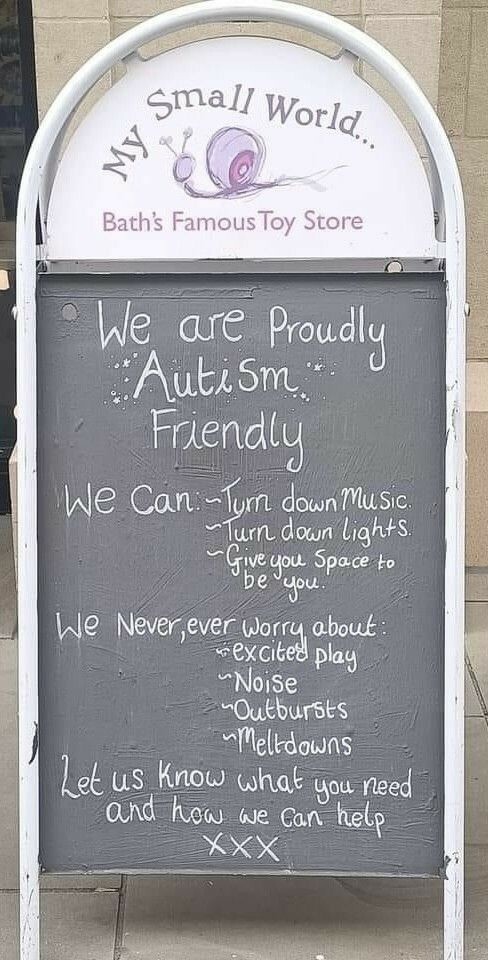 My Small World...
Bath's Famous Toy Store
We are Proudly
Autism
Friendly
We Can: ~Turn down Music.
~Turn down lights.
~Give you Space to
be you.
We Never, ever worry about:
~excited play
~Noise
~Outbursts
~Meltdowns
Let us know what you need
and how we can help
xxx